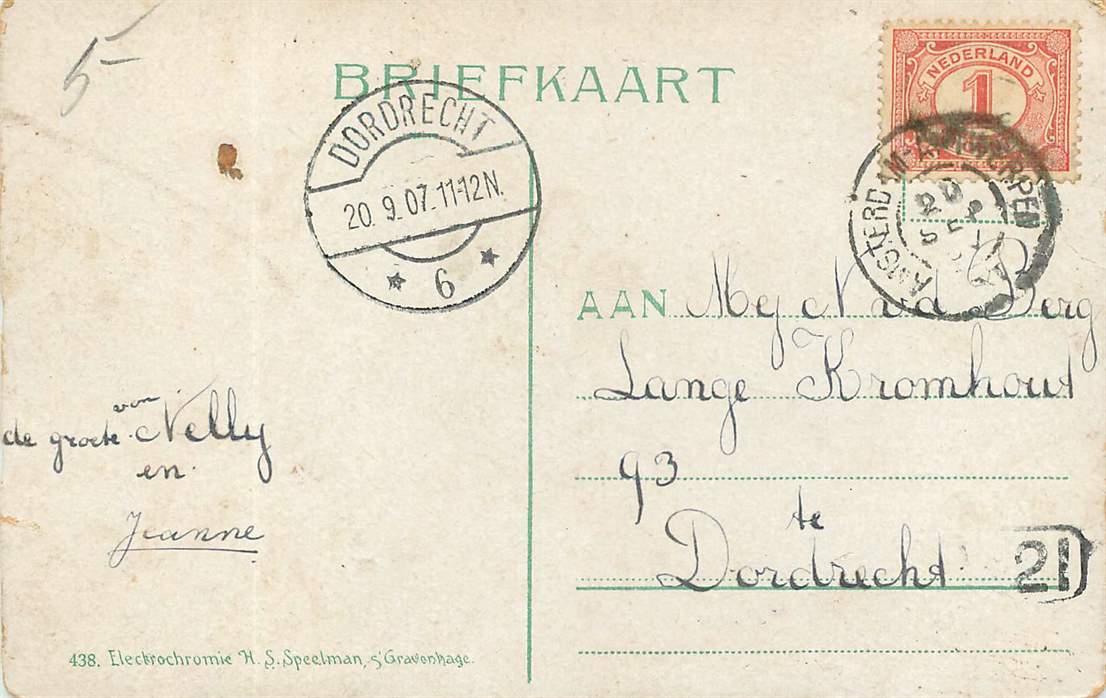 5-
BRIEFKAART
NEDERLAND
1
DORDRECHT
20. 9. 07. 11-12 N.
6
AMSTERDAM-ANTWERPEN
20 SEP
A
AAN Mej N v d Berg
Lange Kromhout
93
te
Dordrecht
21
van
de groete Nelly
en
Jeanne
438. Electrochromie H. S. Speelman, s'Gravenhage.